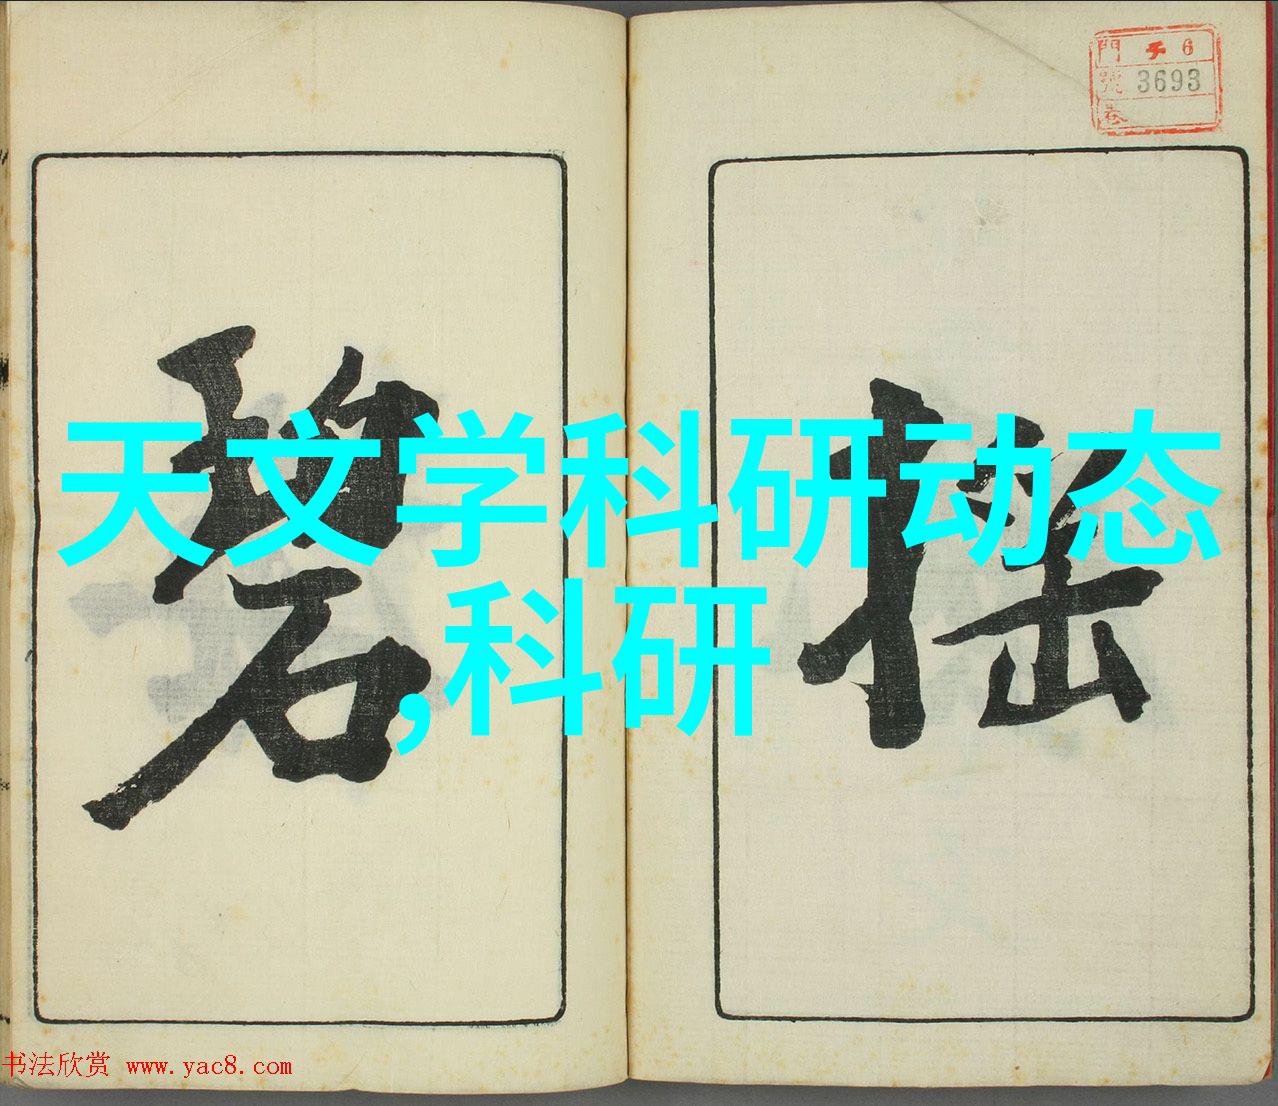 門 6
號 3693
卷
天文学科研动态
,科研
摇
碧
书法欣赏 www.yac8.com